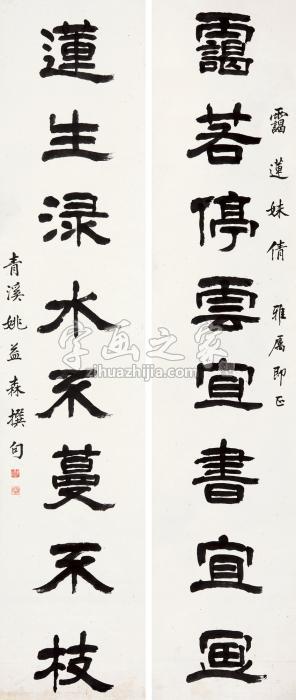 靄蓮妹倩 雅属即正
靄若停雲宜書宜画
蓮生渌水不蔓不枝
青溪姚益森撰句
字画之家
zihuazhijia.com